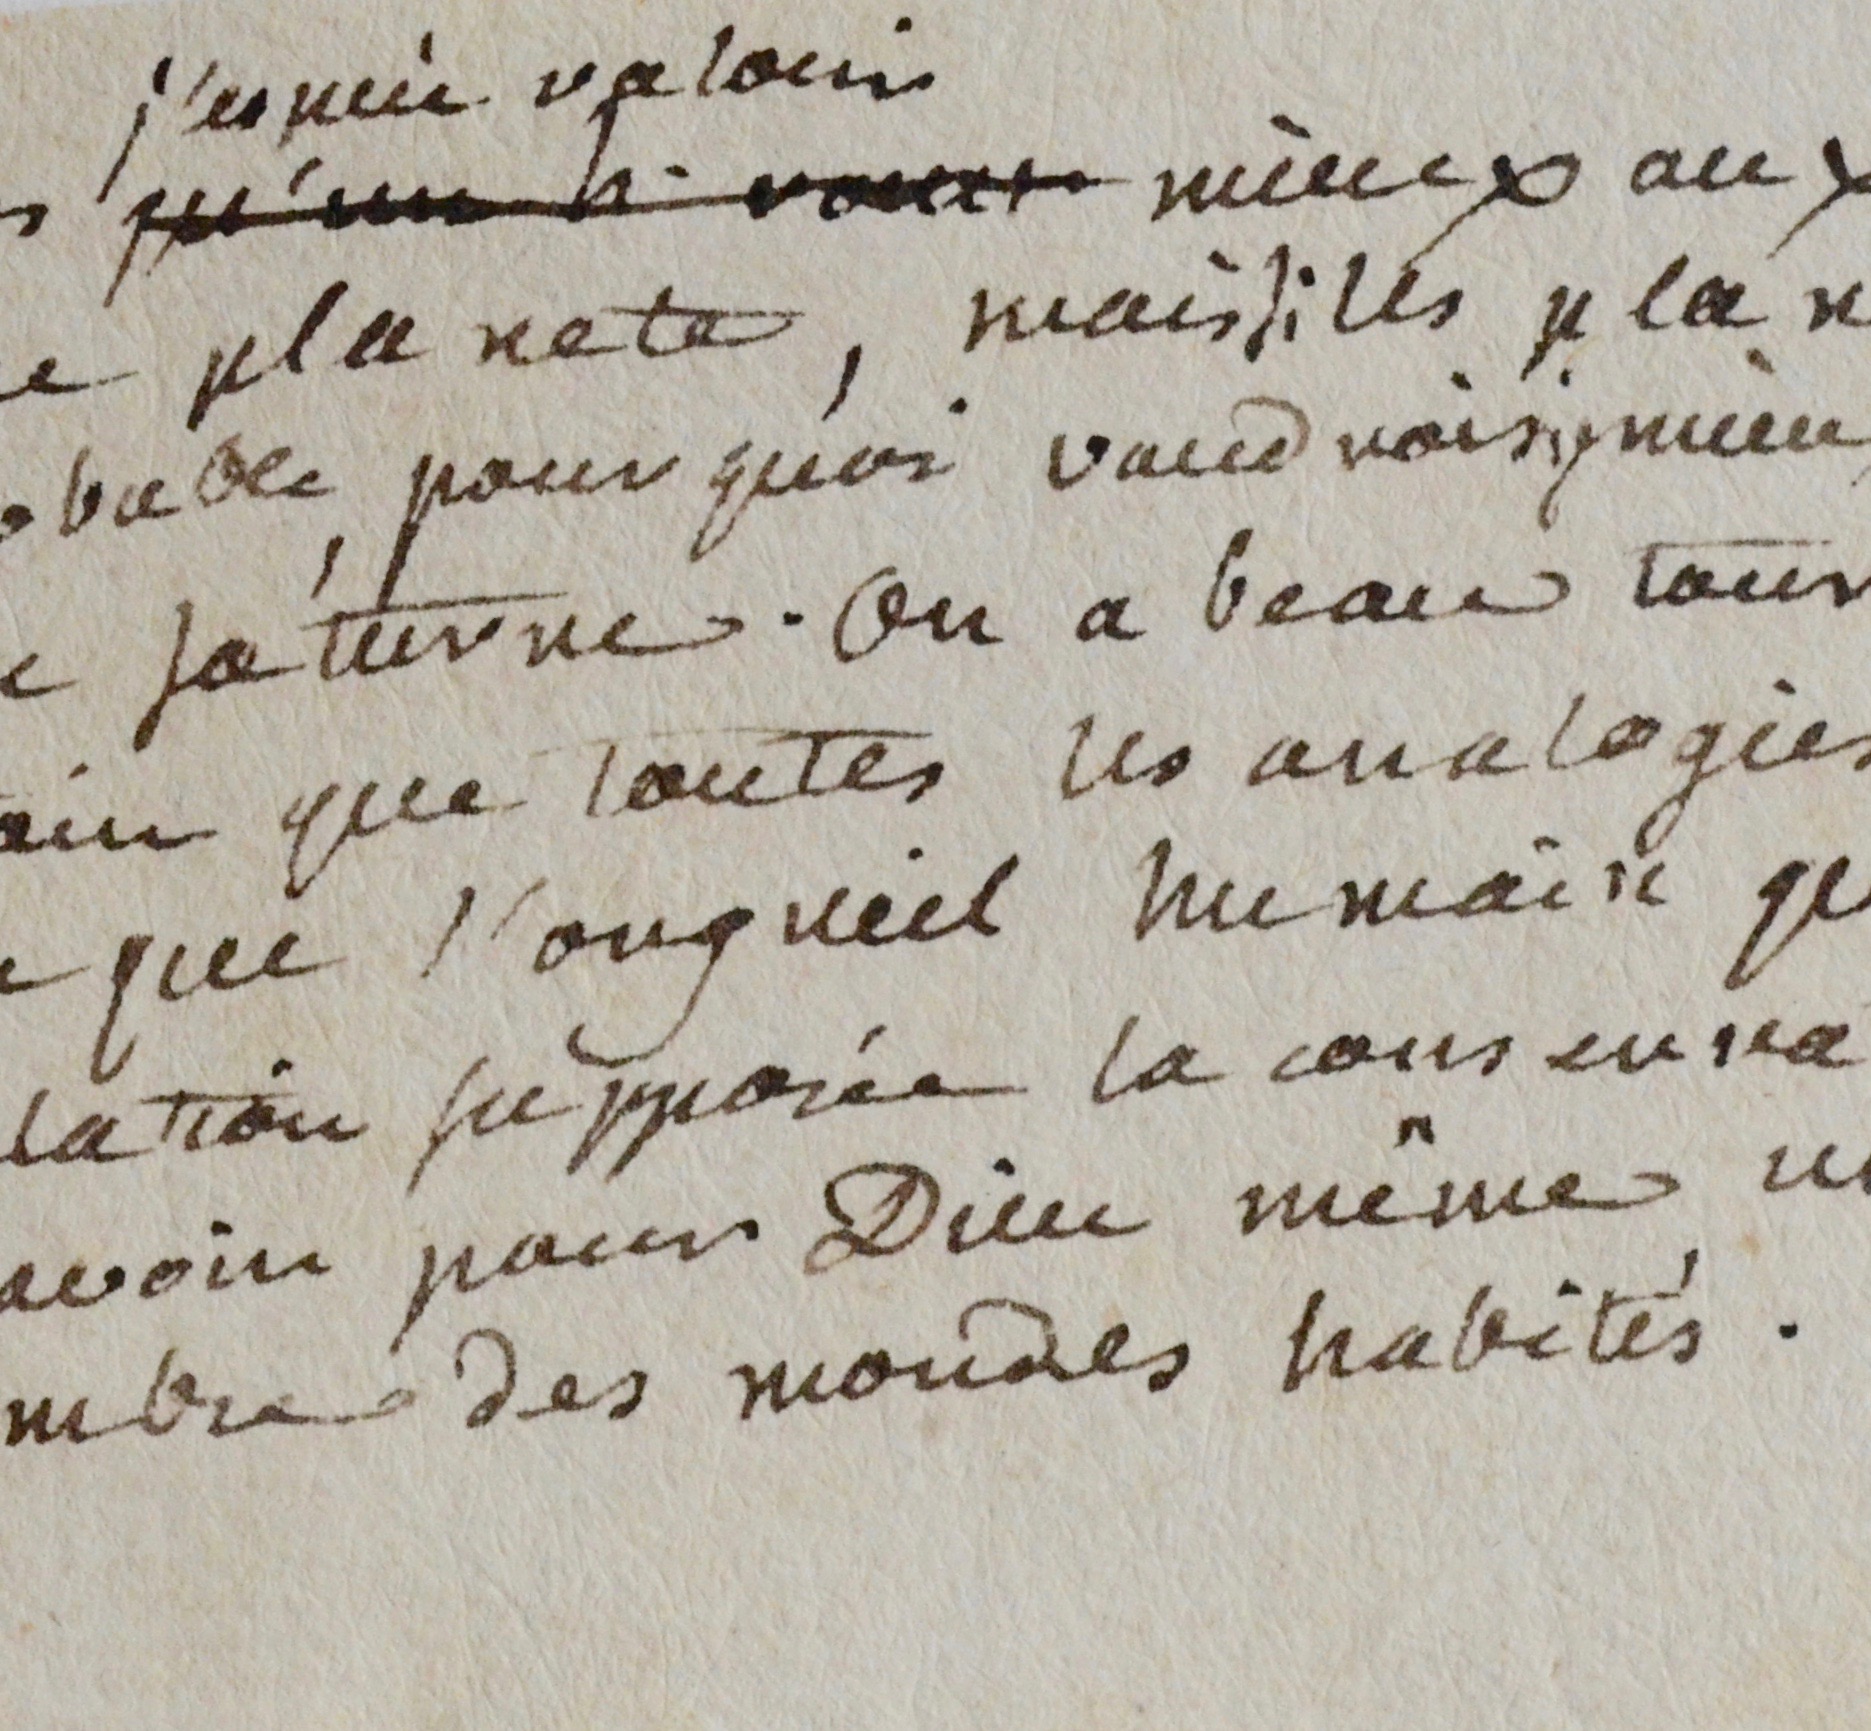 j'espére valoir
s qu'un h. vaut mieux aux
e planete, mais si les plan
obable, pourquoi vaudrois-je mieux
e saturne. On a beau tour
ain que toutes les analogies
e que l'orgueil humain qu
lation supposée la conserva
avoir pour Dieu même
mbre des mondes habités.